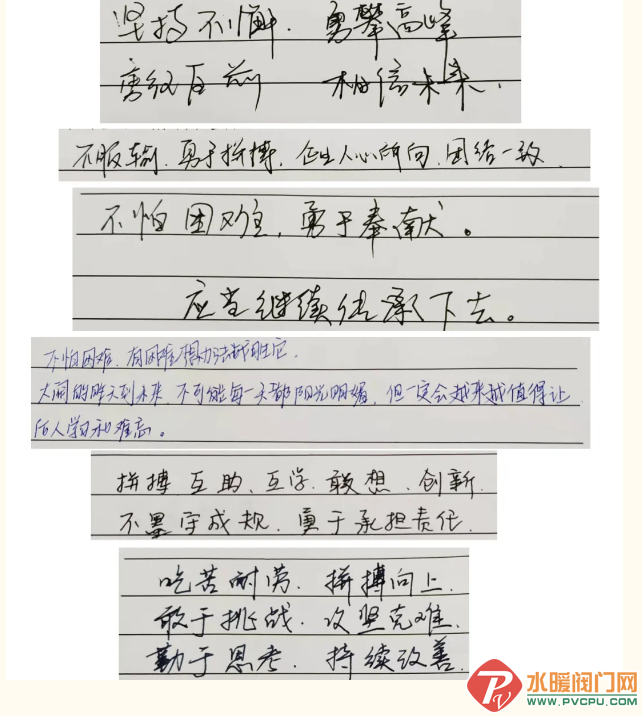 坚持不懈. 勇攀高峰
勇往直前 相信未来.
不服输. 勇于拼搏. 企业人心所向. 团结一致.
不怕困难, 勇于奉献。
应当继续传承下去。
不怕困难. 有困难想办法战胜它.
大阀的昨天到未来. 不可能每一天都阳光明媚, 但一定会越来越值得让
后人学习和难忘。
拼搏. 互助. 互学. 敢想. 创新.
不墨守成规. 勇于承担责任.
吃苦耐劳. 拼搏向上.
敢于挑战. 攻坚克难.
勤于思考. 持续改善.
水暖阀门网
WWW.PVCPU.COM